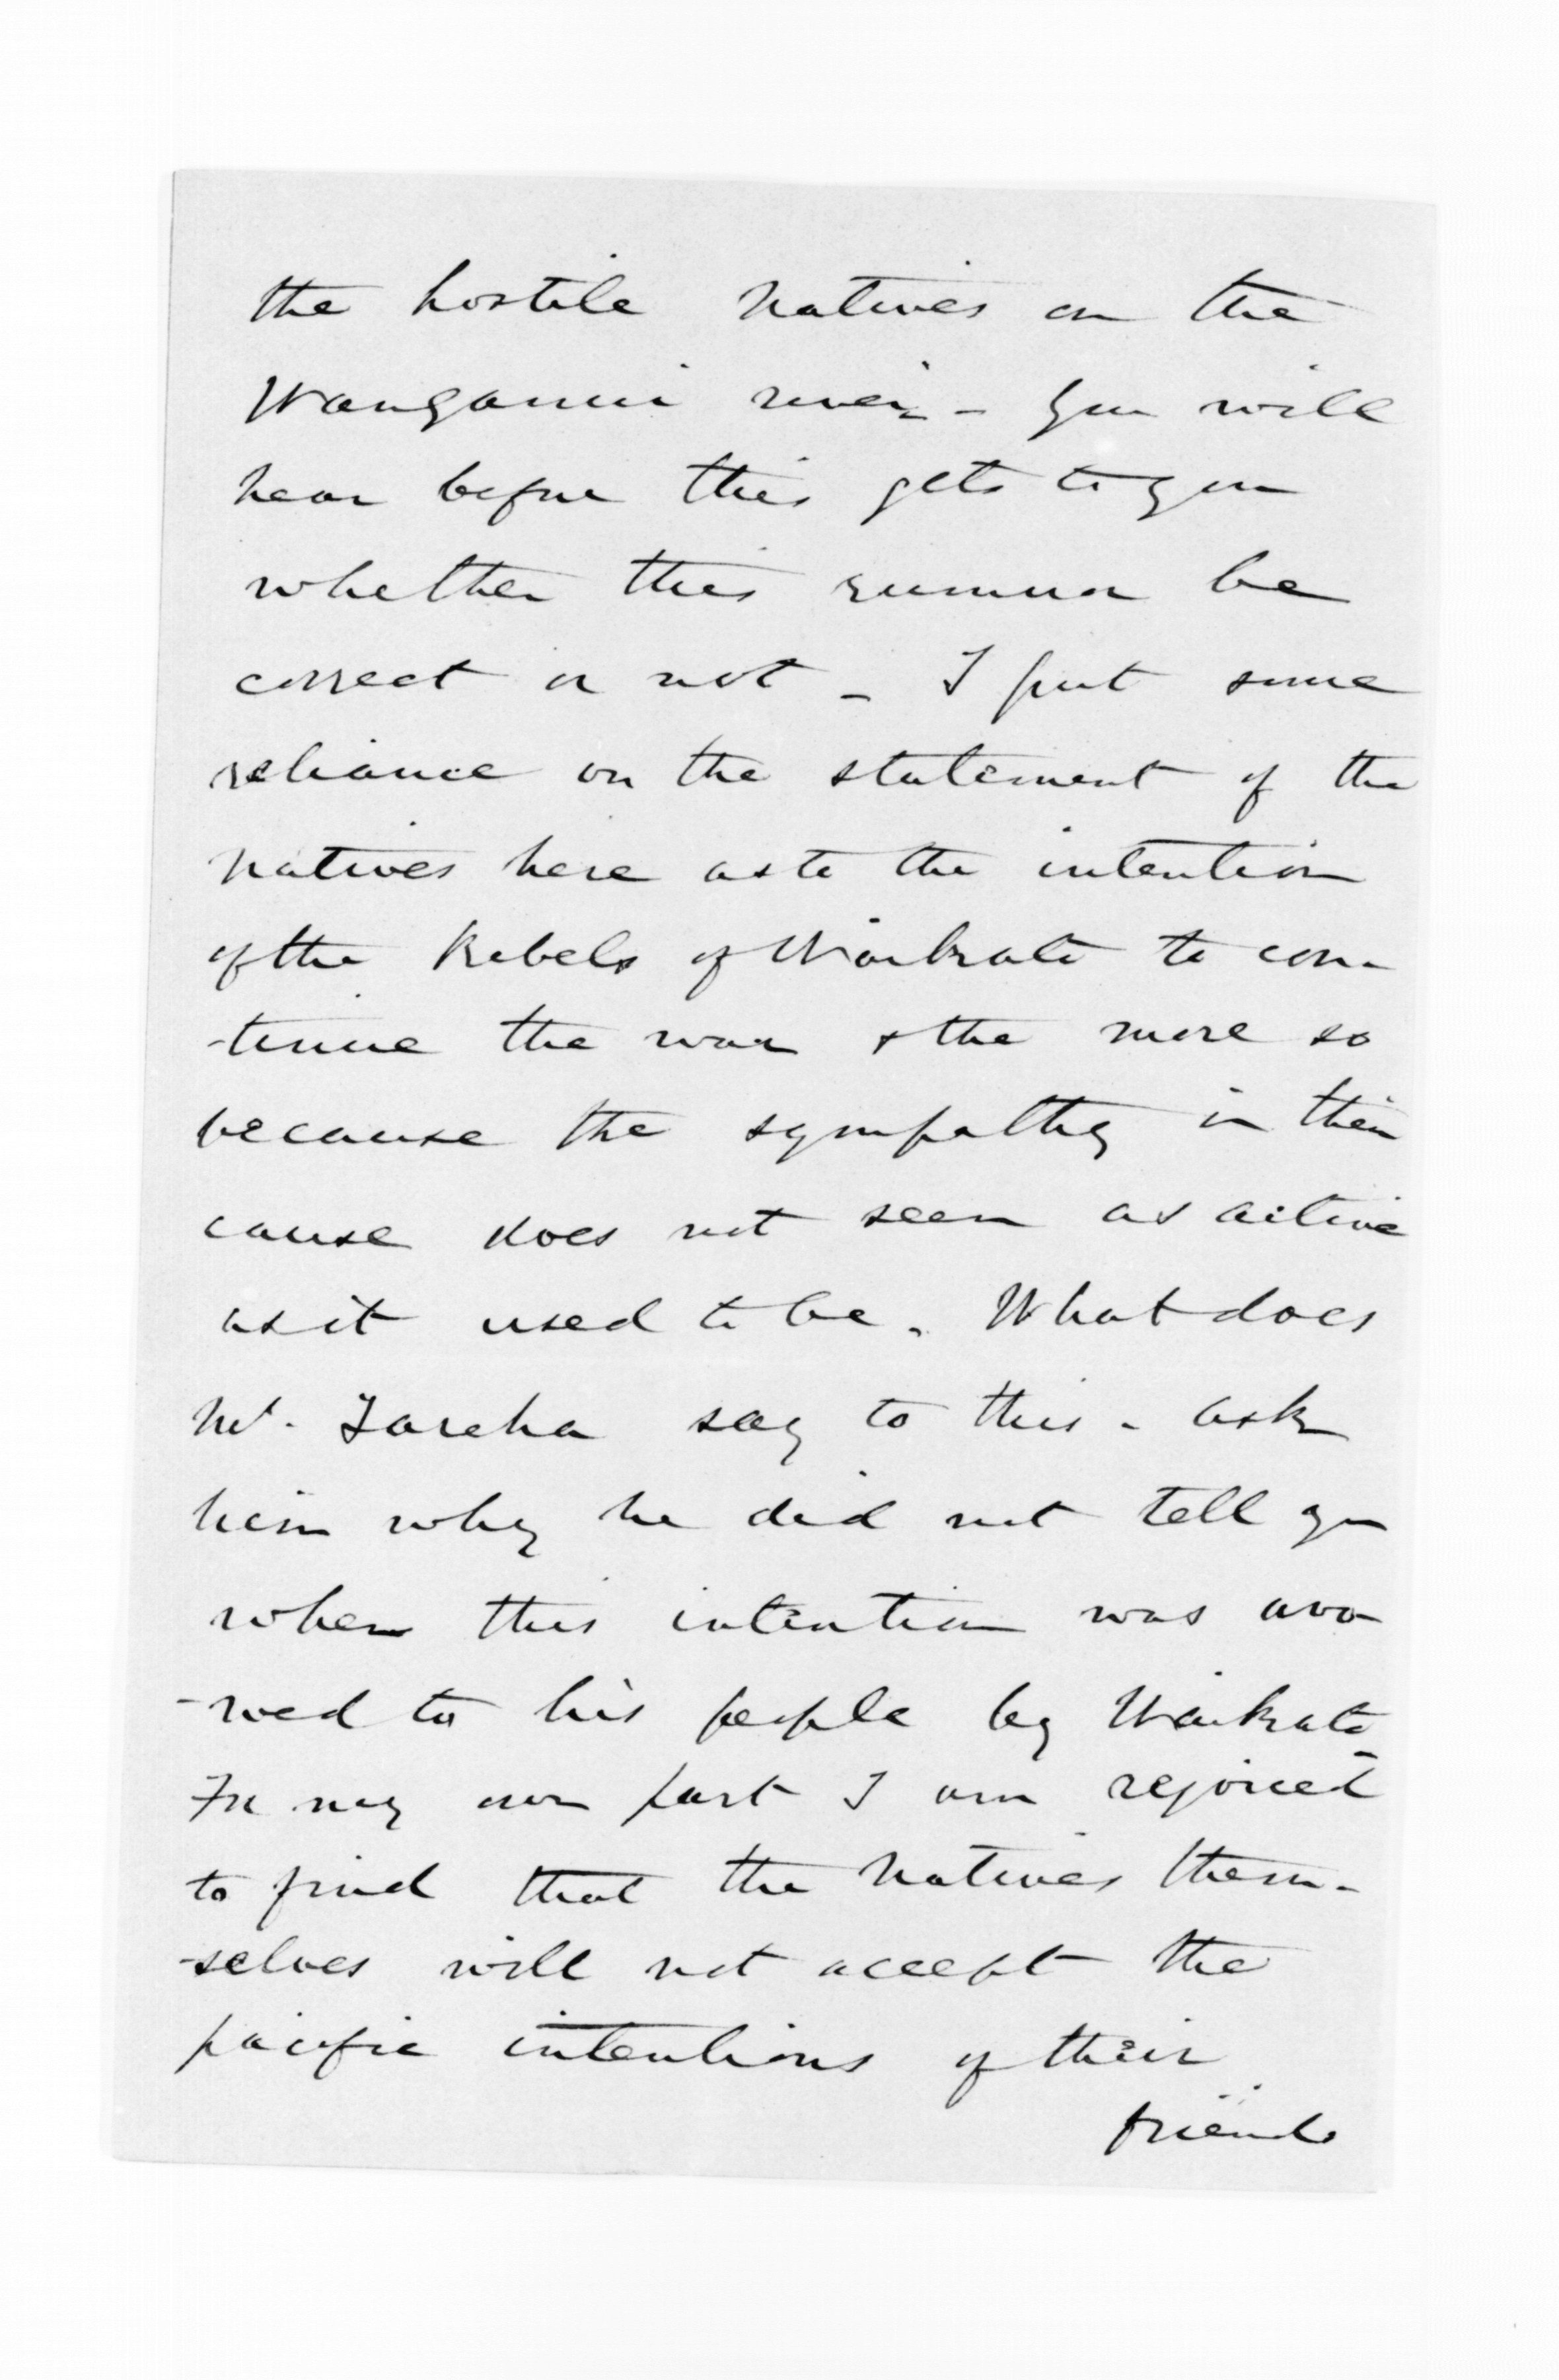 the hostile Natives on the
Wanganui river - You will
hear before this gets to you
whether this rumour be
correct or not - I put some
reliance on the statement of the
Natives here as to the intention
of the Rebels of Waikato to con-
-tinue the war & the more so
because the sympathy in their
cause does not seem as active
as it used to be. What does
Mr. Tareha say to this - ask
him why he did not tell you
when this intention was avo
-wed to his people by Waikato -
For my own part I am rejoiced
to find that the Natives them-
-selves will not accept the
pacific intentions of their
friends